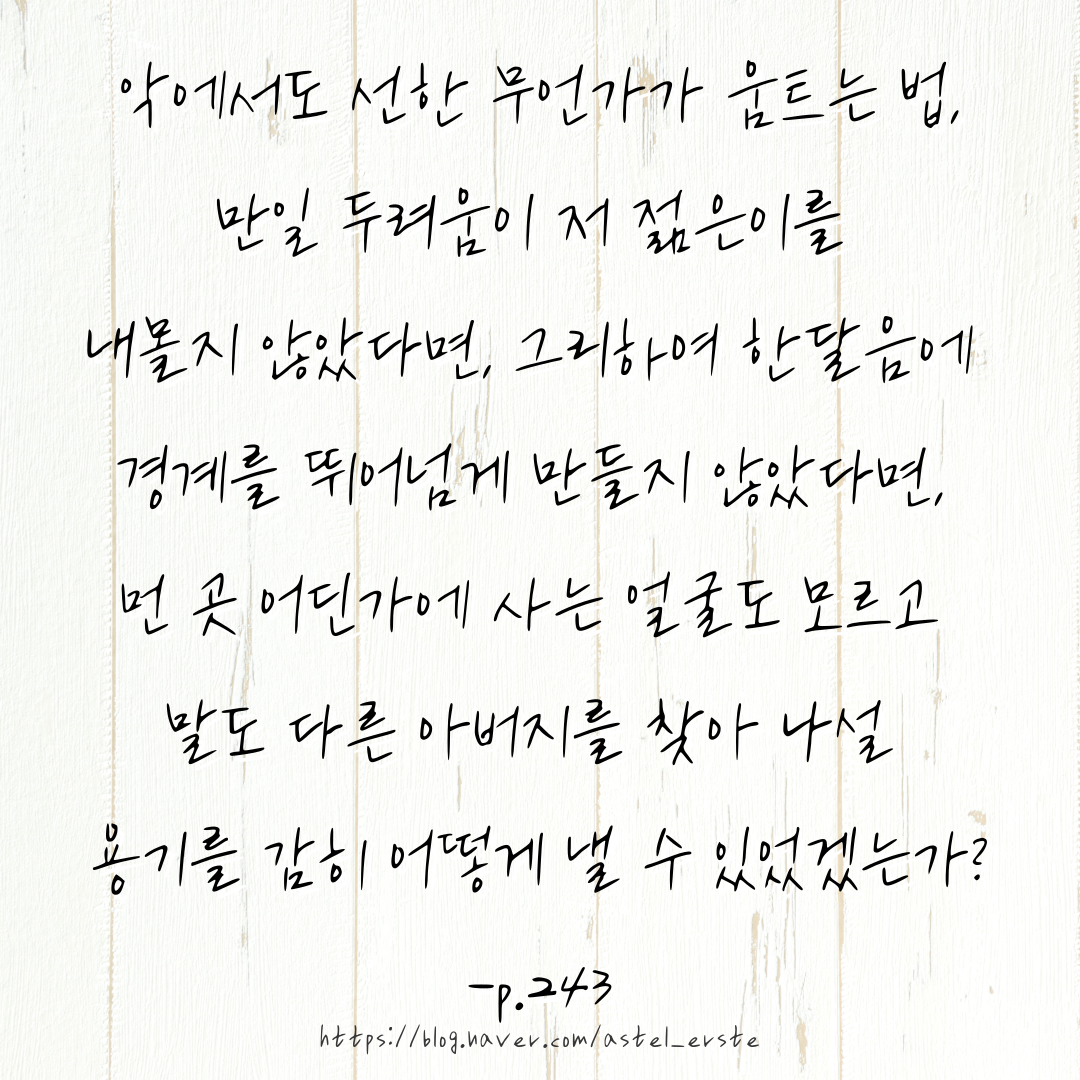 악에서도 선한 무언가가 움트는 법,
만일 두려움이 저 젊은이를
내몰지 않았다면, 그리하여 한달음에
경계를 뛰어넘게 만들지 않았다면,
먼 곳 어딘가에 사는 얼굴도 모르고
말도 다른 아버지를 찾아 나설
용기를 감히 어떻게 낼 수 있었겠는가?
-p.243
https://blog.naver.com/astel_erste